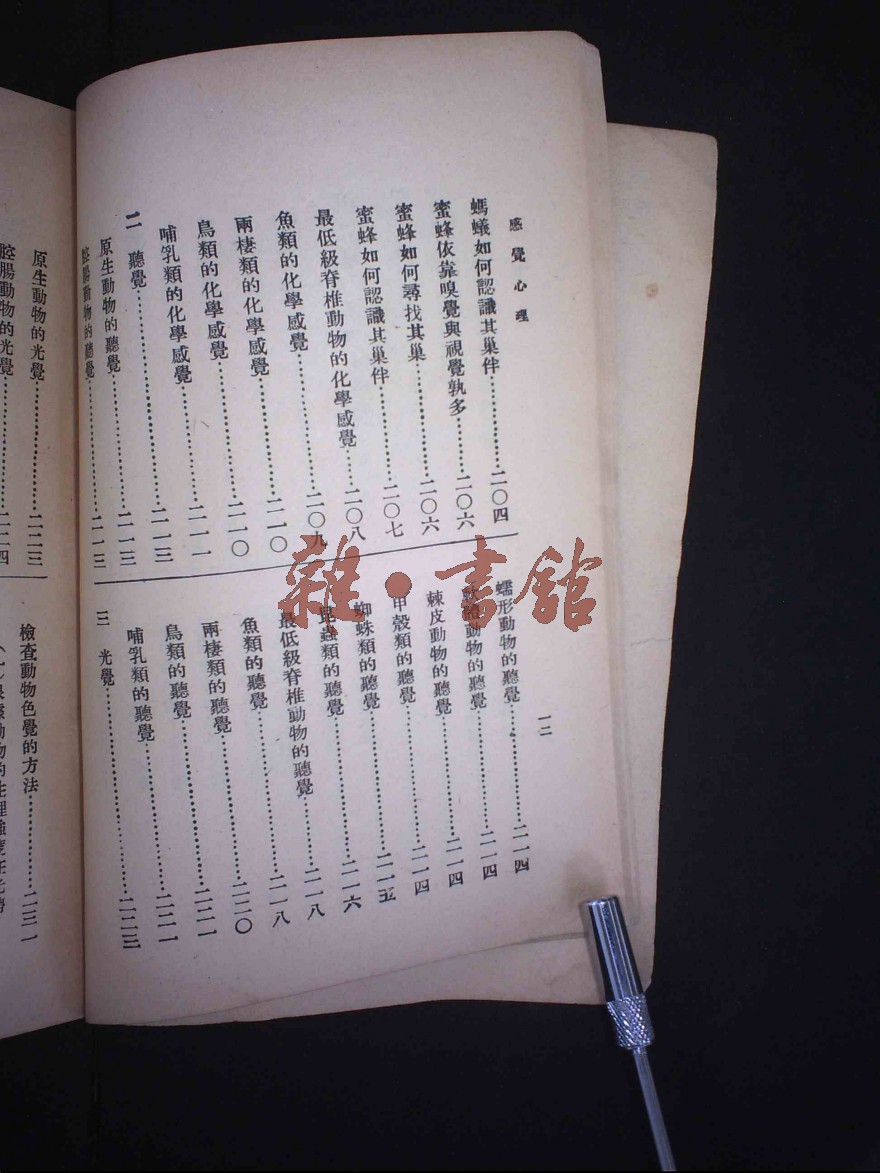 感覺心理
螞蟻如何認識其巢伴……二〇四
蜜蜂依靠嗅覺與視覺孰多……二〇六
蜜蜂如何尋找其巢……二〇六
蜜蜂如何認識其巢伴……二〇七
最低級脊椎動物的化學感覺……二〇八
魚類的化學感覺……二〇九
兩棲類的化學感覺……二一〇
鳥類的化學感覺……二一〇
哺乳類的化學感覺……二一一
二 聽覺……二一三
原生動物的聽覺……二一三
腔腸動物的聽覺……二一三
一二
蠕形動物的聽覺……二一四
軟體動物的聽覺……二一四
棘皮動物的聽覺……二一四
甲殼類的聽覺……二一四
蜘蛛類的聽覺……二一五
昆蟲類的聽覺……二一六
最低級脊椎動物的聽覺……二一八
魚類的聽覺……二一八
兩棲類的聽覺……二二〇
鳥類的聽覺……二二一
哺乳類的聽覺……二二一
三 光覺……二二三
原生動物的光覺……二二三
腔腸動物的光覺……二二四
檢查動物色覺的方法……二三一
雜·書館